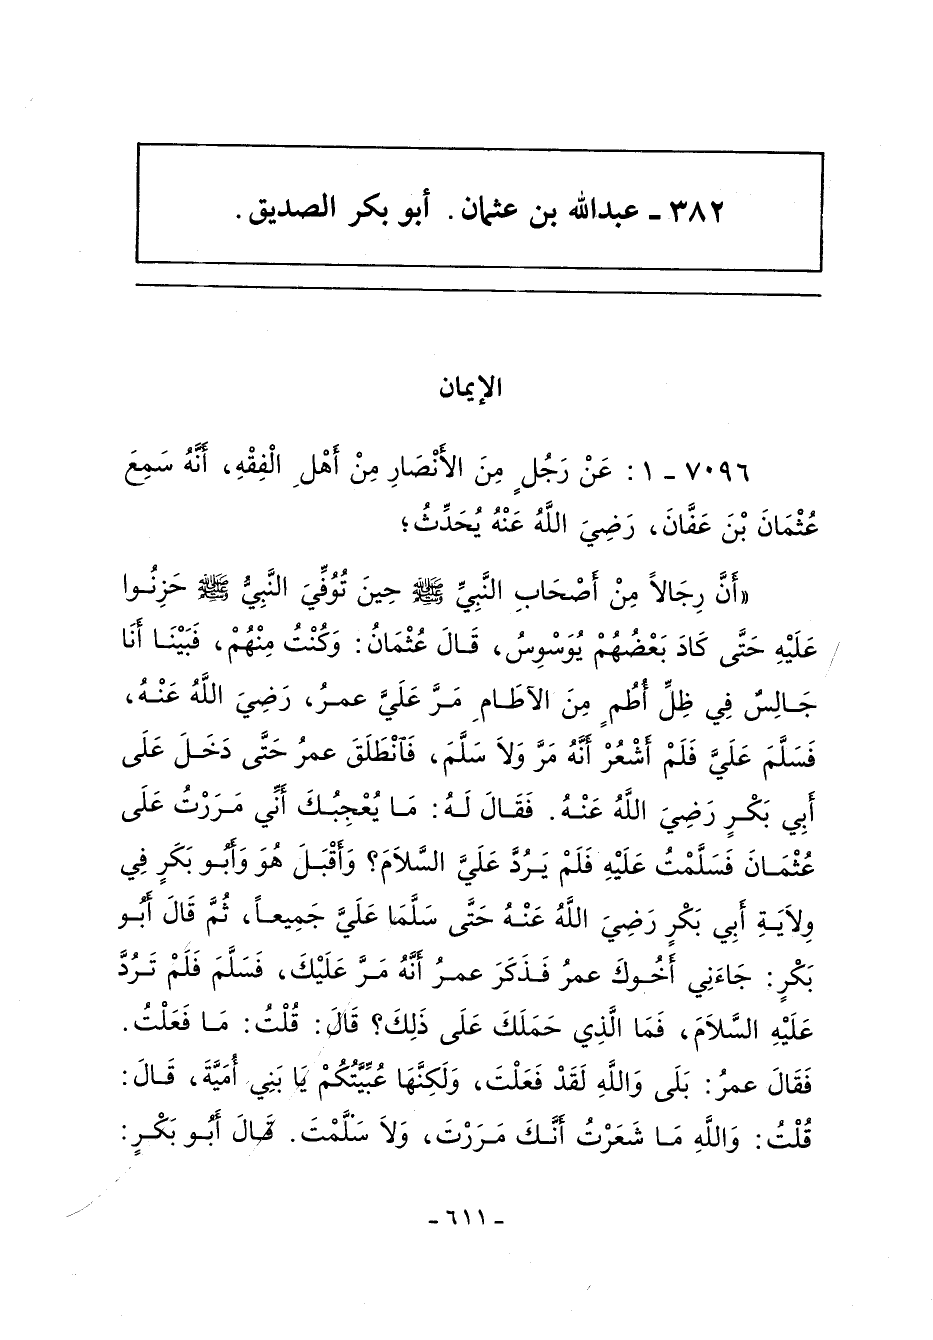 ٣٨٢ - عبدالله بن عثمان. أبو بكر الصديق.
الإيمان
٧٠٩٦ - ١: عَنْ رَجُلٍ مِنَ الأَنْصَارِ مِنْ أَهْلِ الْفِقْهِ، أَنَّهُ سَمِعَ
عُثْمَانَ بْنَ عَفَّانَ، رَضِيَ اللَّهُ عَنْهُ يُحَدِّثُ؛
«أَنَّ رِجَالاً مِنْ أَصْحَابِ النَّبِيِّ ﷺ حِينَ تُوُفِّيَ النَّبِيُّ ﷺ حَزِنُوا
عَلَيْهِ حَتَّى كَادَ بَعْضُهُمْ يُوَسْوِسُ، قَالَ عُثْمَانُ: وَكُنْتُ مِنْهُمْ، فَبَيْنَا أَنَا
جَالِسٌ فِي ظِلِّ أُطُمٍ مِنَ الآطَامِ مَرَّ عَلَيَّ عمرُ، رَضِيَ اللَّهُ عَنْهُ،
فَسَلَّمَ عَلَيَّ فَلَمْ أَشْعُرْ أَنَّهُ مَرَّ وَلاَ سَلَّمَ، فَٱنْطَلَقَ عمرُ حَتَّى دَخَلَ عَلَى
أَبِي بَكْرٍ رَضِيَ اللَّهُ عَنْهُ. فَقَالَ لَهُ: مَا يُعْجِبُكَ أَنِّي مَرَرْتُ عَلَى
عُثْمَانَ فَسَلَّمْتُ عَلَيْهِ فَلَمْ يَرُدَّ عَلَيَّ السَّلاَمَ؟ وَأَقْبَلَ هُوَ وَأَبُو بَكَرٍ فِي
وِلاَيَةِ أَبِي بَكْرٍ رَضِيَ اللَّهُ عَنْهُ حَتَّى سَلَّمَا عَلَيَّ جَمِيعاً، ثُمَّ قَالَ أَبُو
بَكْرٍ: جَاءَنِي أَخُوكَ عمرُ فَذَكَرَ عمرُ أَنَّهُ مَرَّ عَلَيْكَ، فَسَلَّمَ فَلَمْ تَرُدَّ
عَلَيْهِ السَّلاَمَ، فَمَا الَّذِي حَمَلَكَ عَلَى ذَلِكَ؟ قَالَ: قُلْتُ: مَا فَعَلْتُ.
فَقَالَ عمرُ: بَلَى وَاللَّهِ لَقَدْ فَعَلْتَ، وَلَكِنَّهَا عُبِّيَّتُكُمْ يَا بَنِي أُمَيَّةَ، قَالَ:
قُلْتُ: وَاللَّهِ مَا شَعَرْتُ أَنَّكَ مَرَرْتَ، وَلاَ سَلَّمْتَ. قَالَ أَبُو بَكْرٍ:
- ٦١١ -